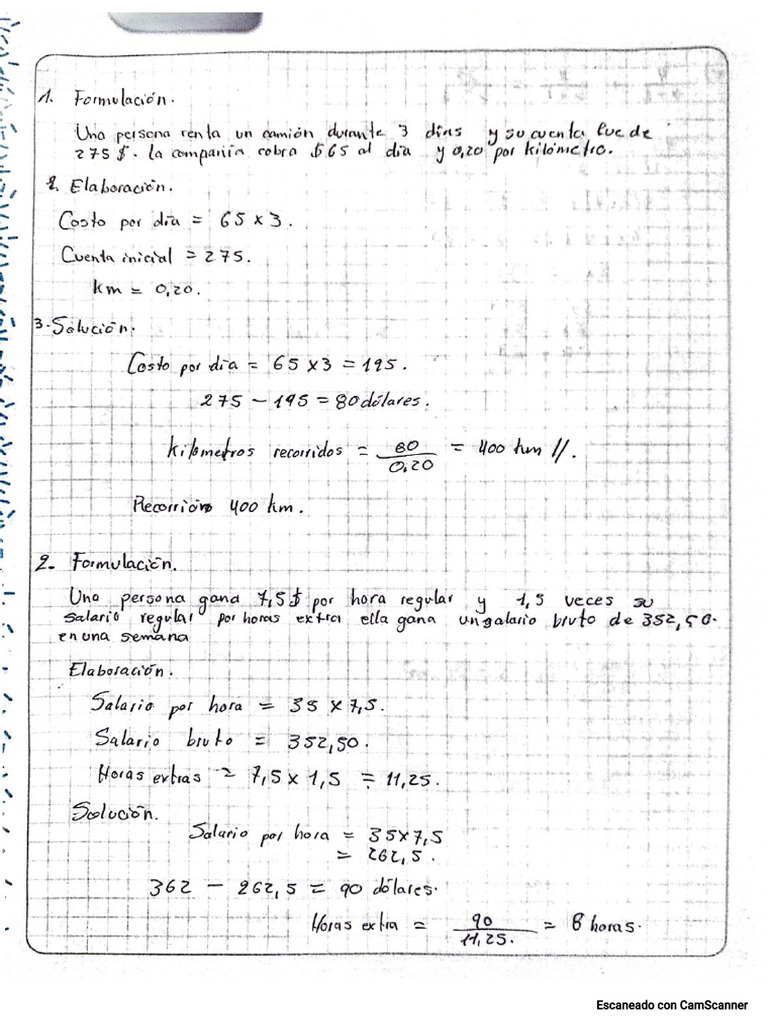 1. Formulación.
Una persona renta un camión durante 3 días y su cuenta fue de
275 $. la compañia cobra $65 al dia y 0,20 por kilómetro.
2. Elaboración.
Costo por dia = 65 x 3.
Cuenta inicial = 275.
km = 0,20.
3. Solución.
Costo por dia = 65 x 3 = 195.
275 - 195 = 80 dólares.
kilometros recorridos = 80/0,20 = 400 km //.
Recorrió 400 km.
2. Formulación.
Una persona gana 7,5$ por hora regular y 1,5 veces su
salario regular por horas extra ella gana un salario bruto de 352,50.
en una semana
Elaboración.
Salario por hora = 35 x 7,5.
Salario bruto = 352,50.
Horas extras = 7,5 x 1,5 = 11,25.
Solución.
Salario por hora = 35x7,5
= 262,5.
362 - 262,5 = 90 dólares.
Horas extra = 90/11,25. = 8 horas.
Escaneado con CamScanner